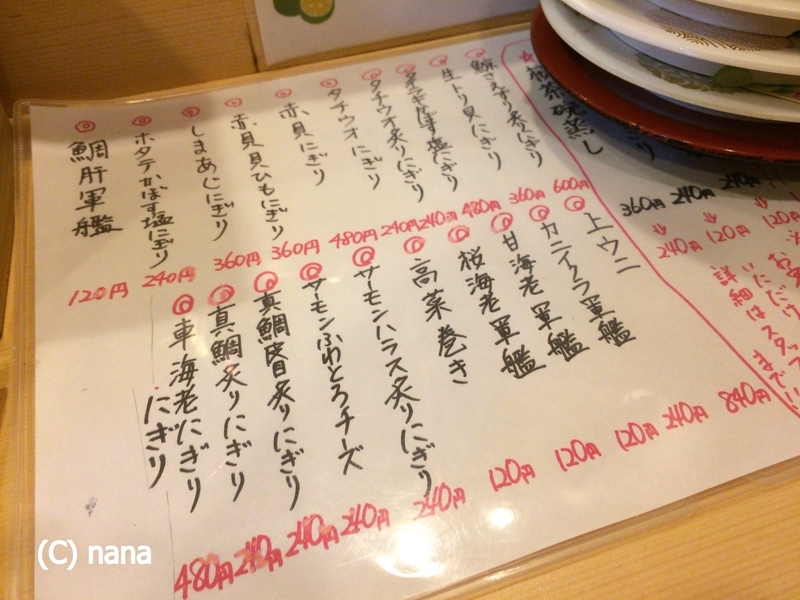 桜茶碗蒸し
360円
240円
240円
↓
↓
240円
120円
120円
いただけ
詳細はスタッフまで!!
鯨さえずり炙りにぎり 600円
生トリ貝にぎり 360円
タイラギかぼす塩にぎり 480円
タチウオ炙りにぎり 240円
タチウオにぎり 240円
赤貝にぎり 480円
赤貝貝ひもにぎり 360円
しまあじにぎり 360円
ホタテかぼす塩にぎり 240円
鯛肝軍艦 120円
上ウニ 840円
カニイクラ軍艦 240円
甘海老軍艦 120円
桜海老軍艦 120円
高菜巻き 120円
サーモンハラス炙りにぎり 240円
サーモンふわとろチーズ 240円
真鯛皮目炙りにぎり 240円
真鯛炙りにぎり 240円
車海老にぎり 480円
にぎり
(C) nana